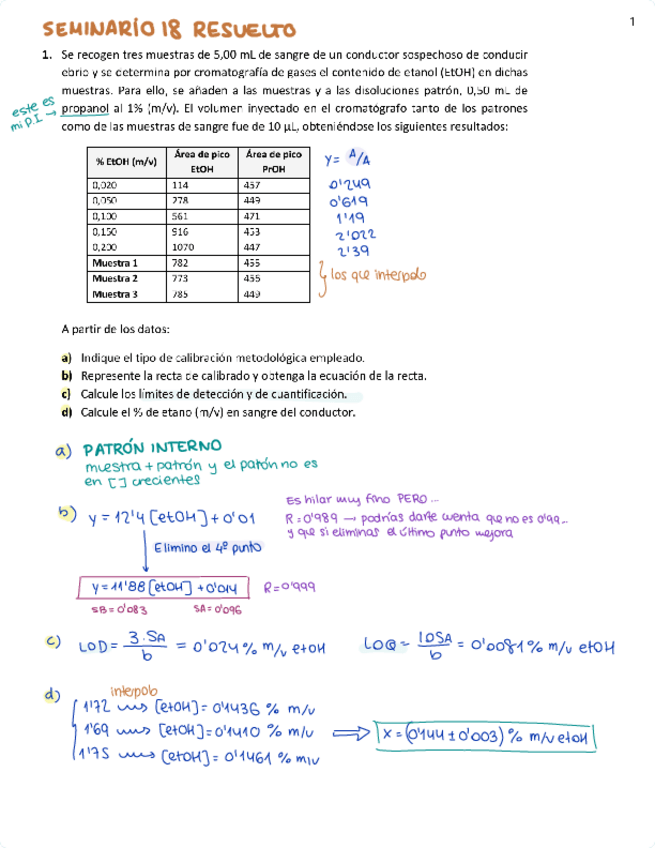 1
SEMINARIO 18 RESUELTO
1. Se recogen tres muestras de 5,00 mL de sangre de un conductor sospechoso de conducir
ebrio y se determina por cromatografía de gases el contenido de etanol (EtOH) en dichas
muestras. Para ello, se añaden a las muestras y a las disoluciones patrón, 0,50 mL de
este es
mi P.I →
propanol al 1% (m/v). El volumen inyectado en el cromatógrafo tanto de los patrones
como de las muestras de sangre fue de 10 µL, obteniéndose los siguientes resultados:
% EtOH (m/v) Área de pico EtOH Área de pico PrOH y = A/A
0,020 114 457 0'249
0,050 278 449 0'619
0,100 561 471 1'19
0,150 916 453 2'022
0,200 1070 447 2'39
Muestra 1 782 455
Muestra 2 773 455 los que interpolo
Muestra 3 785 449
A partir de los datos:
a) Indique el tipo de calibración metodológica empleado.
b) Represente la recta de calibrado y obtenga la ecuación de la recta.
c) Calcule los límites de detección y de cuantificación.
d) Calcule el % de etano (m/v) en sangre del conductor.
a) PATRÓN INTERNO
muestra + patrón y el patón no es
en [ ] crecientes
b) y = 12'4 [etOH] + 0'01
Es hilar muy fino PERO...
R = 0'989 → podrías darte cuenta que no es 0'99...
y que si eliminas el último punto mejora
Elimino el 4º punto
y = 11'88 [etOH] + 0'014 R = 0'999
SB = 0'083 SA = 0'096
c) LOD = 3·SA / b = 0'024 % m/v etOH LOQ = 10SA / b = 0'0081 % m/v etOH
d) interpolo
1'72 → [etOH] = 0'1436 % m/v
1'69 → [etOH] = 0'1410 % m/v ⇒ x = (0'144 ± 0'003) % m/v etOH
1'75 → [etOH] = 0'1461 % m/v